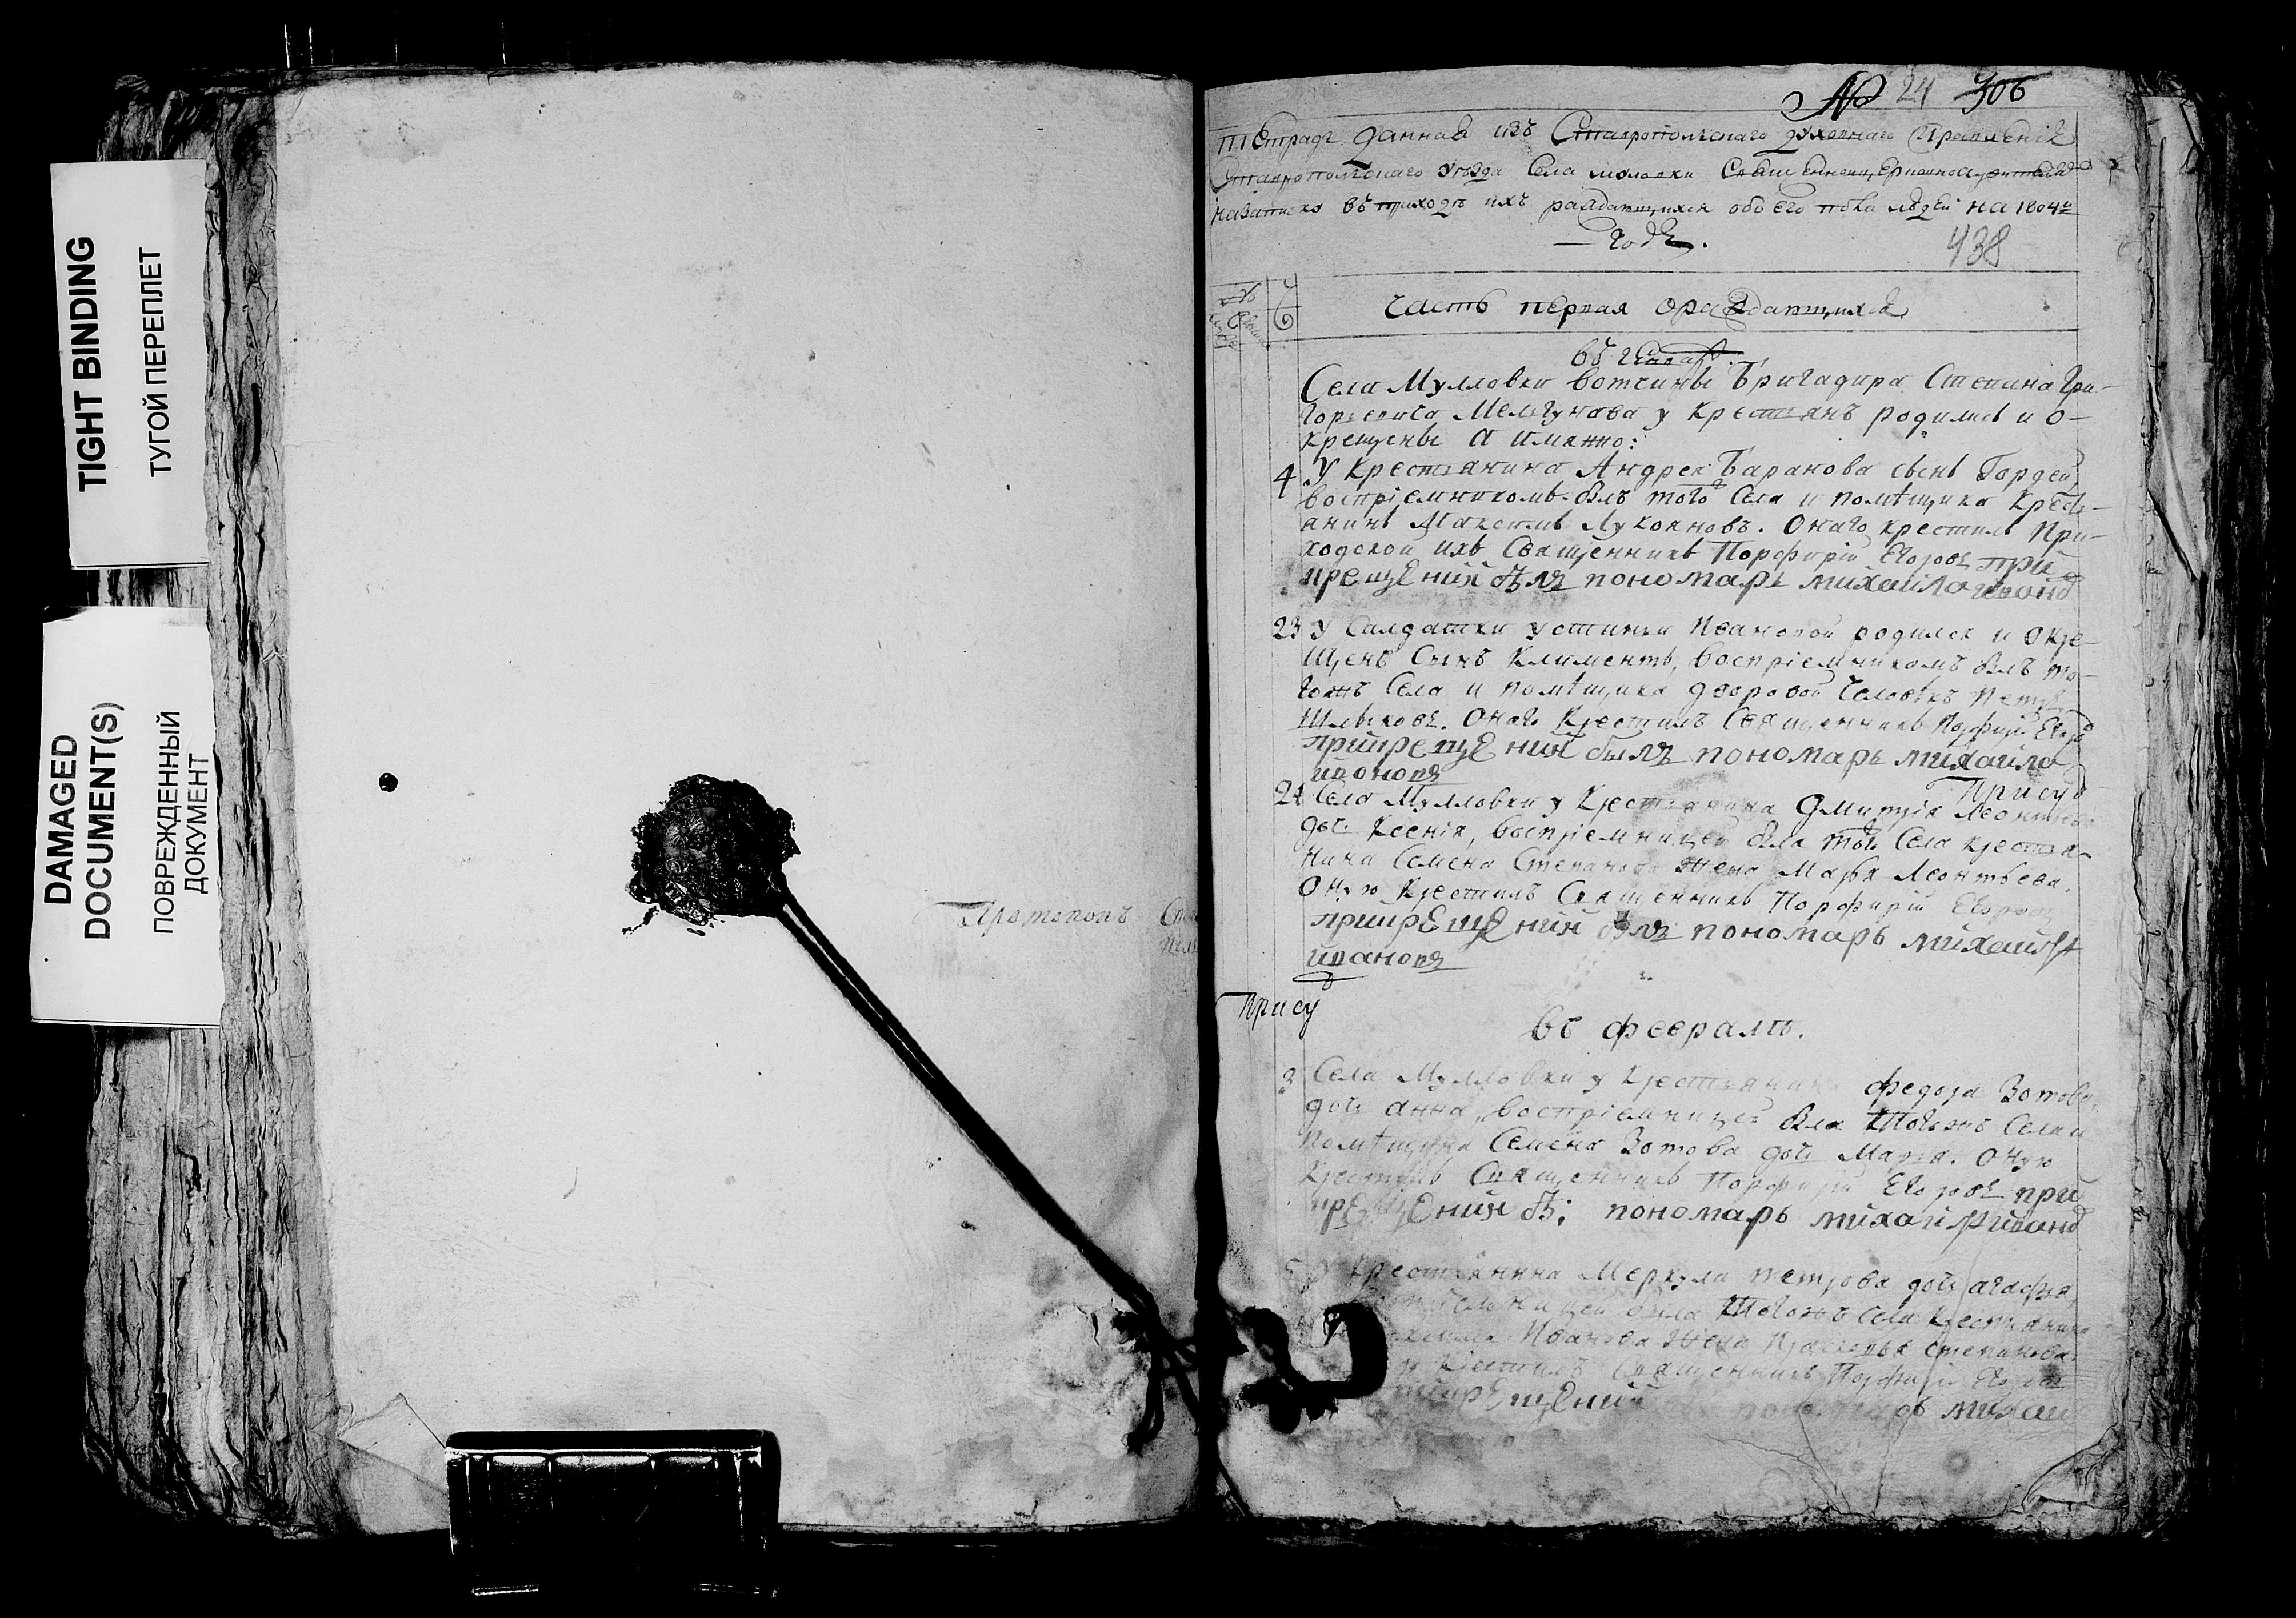 TIGHT BINDING
ТУГОЙ ПЕРЕПЛЕТ
DAMAGED
DOCUMENT(S)
ПОВРЕЖДЕННЫЙ
ДОКУМЕНТ
Протопопъ
№ 24 306
тетрадь даннаѧ изъ Ставропольскаго духовнаго Правленіѧ
Ставропольскаго уѣзда Села моловки
назаписку въ приходѣ ихъ раждающихся обоего пола людей на 1804й
годъ.
438
Часть первая ораждающихся
въ генварѣ.
Села Мулловки вотчины Бригадира Степана Гри-
горьевича Мельгунова у крестьянъ родились и о-
крещены а имянно:
4 У Крестьянина Андрея Баранова сынъ Гордей
воспріемникомъ былъ того Села и помѣщика Кресть-
янинъ Максимъ Лукояновъ. Онаго крестилъ При-
ходской ихъ Священникъ Порфирій Егоровъ при
крещении был пономарь михайла иванов
23 У Салдатки устиньи Ивановой родился и окре-
щенъ Сынъ Климентъ, воспріемникомъ былъ то-
гожъ Села и помѣщика дворовой человѣкъ Петръ
Шлыковъ. Онаго Крестилъ Священникъ Порфирій Егоровъ
прикрещении былъ пономарь михаила
ивановъ
Прису
24 Села Мулловки у Крестьянина Дмитрія Леонтьева
дочь Ксенія, воспріемницей была того Села крестья-
нина Семена Степанова жена Марья Леонтьева.
Оную Крестилъ Священникъ Порфирій Егоровъ
прикрещении былъ пономарь михайла
ивановъ
Прису
въ февралѣ.
3 Села Мулловки у крестьянина федора Зотова
дочь анна, воспріемницей была тогожъ Села и
помѣщика Семена Зотова дочь Марья. Оную
Крестилъ Священникъ Порфирій Егоровъ при
крещении б: пономарь михайла иванов
5 У Крестьянина Меркула петрова дочь агафья,
воспріемницей была тогожъ Села Крестьянина
Иванова жена Прасковья степанова.
Крестилъ Священникъ Порфирій Егоровъ
прикрещении пономарь михаи